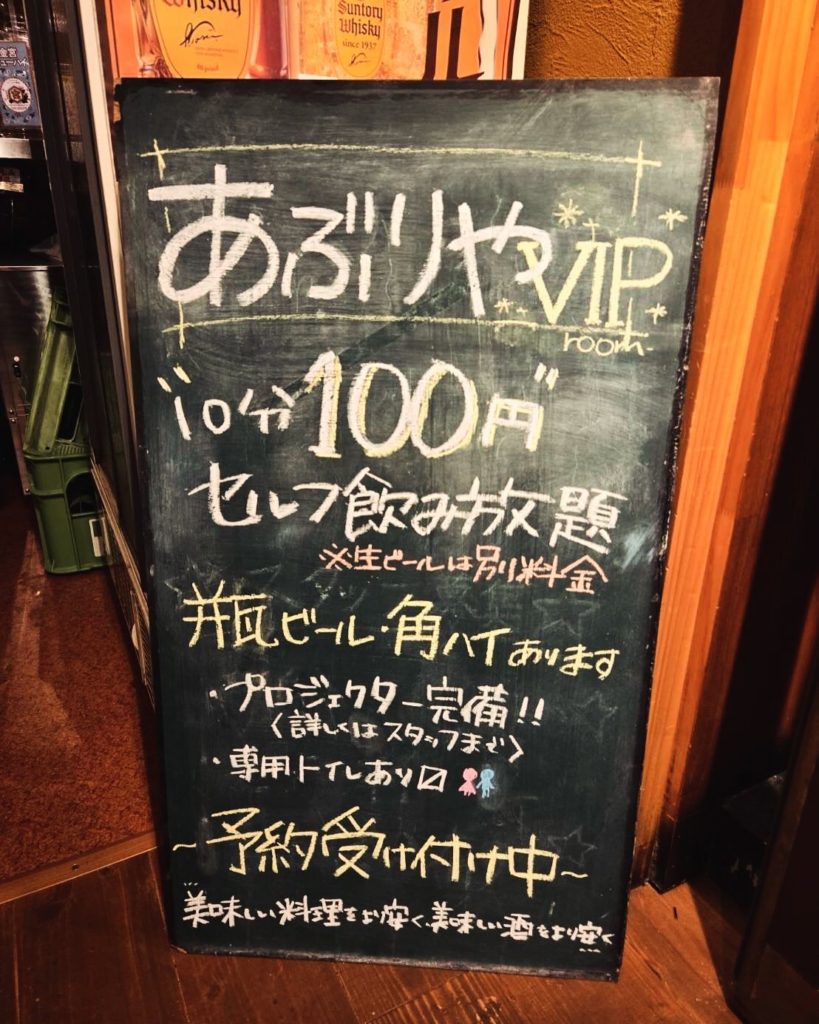 Whisky
Suntory
Whisky
since 1937
あぶりや VIP
room
"10分100円"
セルフ飲み放題
※生ビールは別料金
瓶ビール・角ハイあります
・プロジェクター完備!!
〈詳しくはスタッフまで〉
・専用トイレあり〼
~予約受け付け中~
美味しい料理をより安く、美味しい酒をより安く